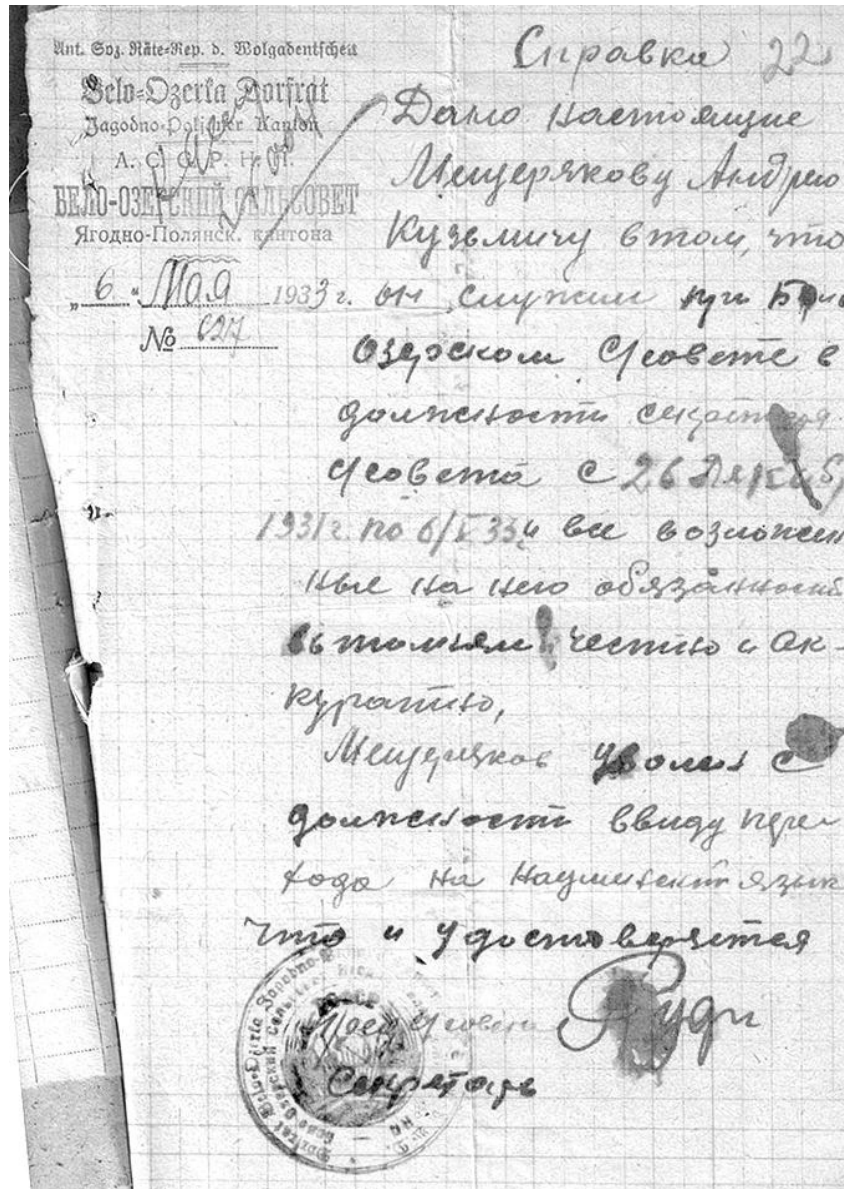 Aut. Soz. Räte-Rep. d. Wolgadeutschen
Belo-Ozerka Dorfrat
Jagodno-Poljaner Kanton
А. С. С. Р. Н. П.
БЕЛО-ОЗЕРСКИЙ СЕЛЬСОВЕТ
Ягодно-Полянск. кантона
„6“ Мая 1933 г.
№ 627
Справка 22
Дано настоящие
Мещерякову Андрею
Кузьмичу в том, что
он служил при Бело
озерском С/совете в
должности секретаря
С/совета с 26 Декаб
1931 г. по 6/V 33 и все возложен
ные на него обязанности
выполнял честно и ак-
куратно,
Мещеряков уволен с
должности ввиду пере
хода на
язык
что и удостоверяется
Пред С/совета
Секретарь